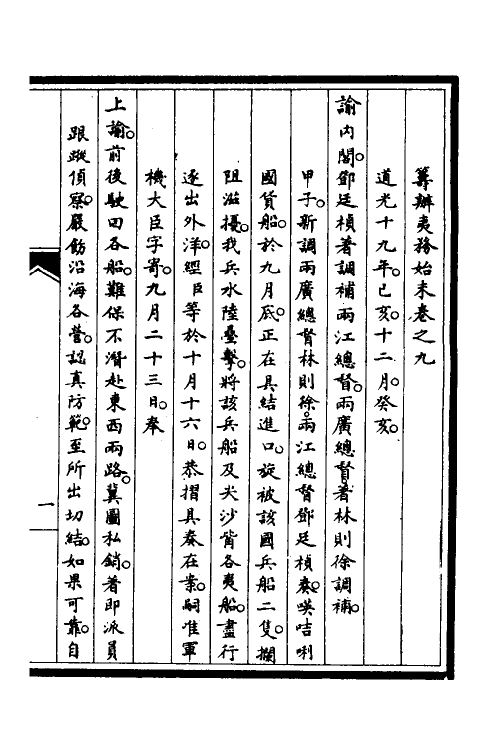 籌辦夷務始末卷之九
道光十九年。己亥。十二月。癸亥。
諭內閣。鄧廷楨著調補兩江總督。兩廣總督著林則徐調補。
甲子。新調兩廣總督林則徐。兩江總督鄧廷楨奏。𠸄咭唎
國貨船。於九月底。正在具結進口。旋被該國兵船二隻。攔
阻滋擾。我兵水陸疊擊。將該兵船及尖沙嘴各夷船。盡行
逐出外洋。經臣等於十月十六日。恭摺具奏在案。嗣准軍
機大臣字寄。九月二十三日。奉
上諭。前後駛回各船。難保不潛赴東西兩路。冀圖私銷。著即派員
跟蹤偵察。嚴飭沿海各營。認真防範。至所出切結。如果可靠。自
一